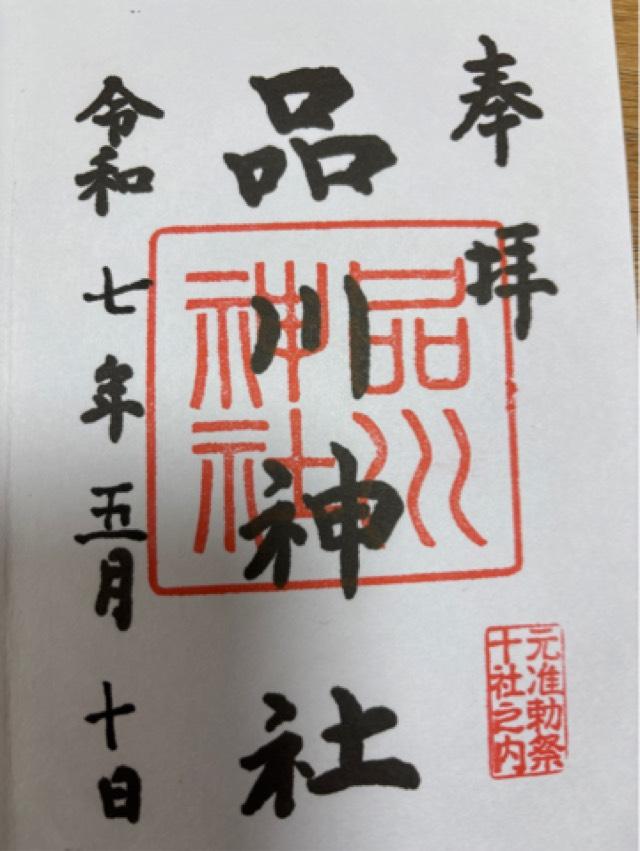 奉拝
品川神社
令和七年五月十日
品川
神社
元准勅祭
十社之内